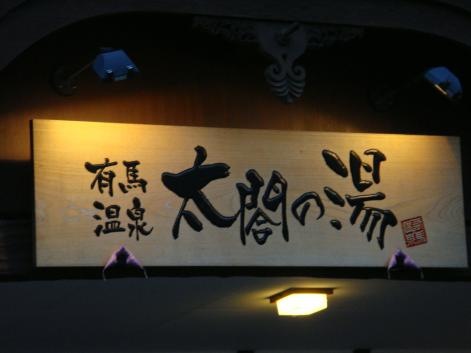 有馬
温泉
太閤の湯